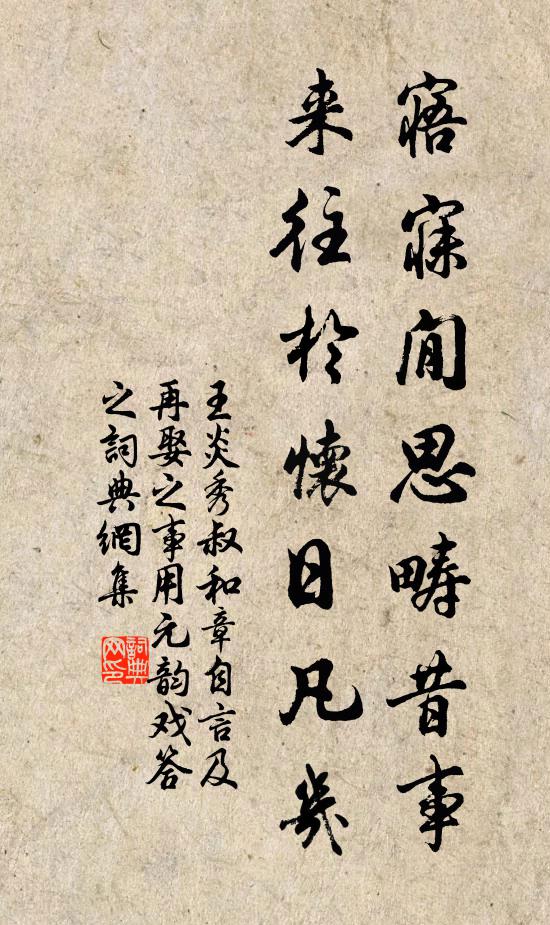 寤寐閒思疇昔事
来往於懷日凡幾
王炎秀叔和章自言及
再娶之事用元韵戏答
之詞典網集
詞典网印